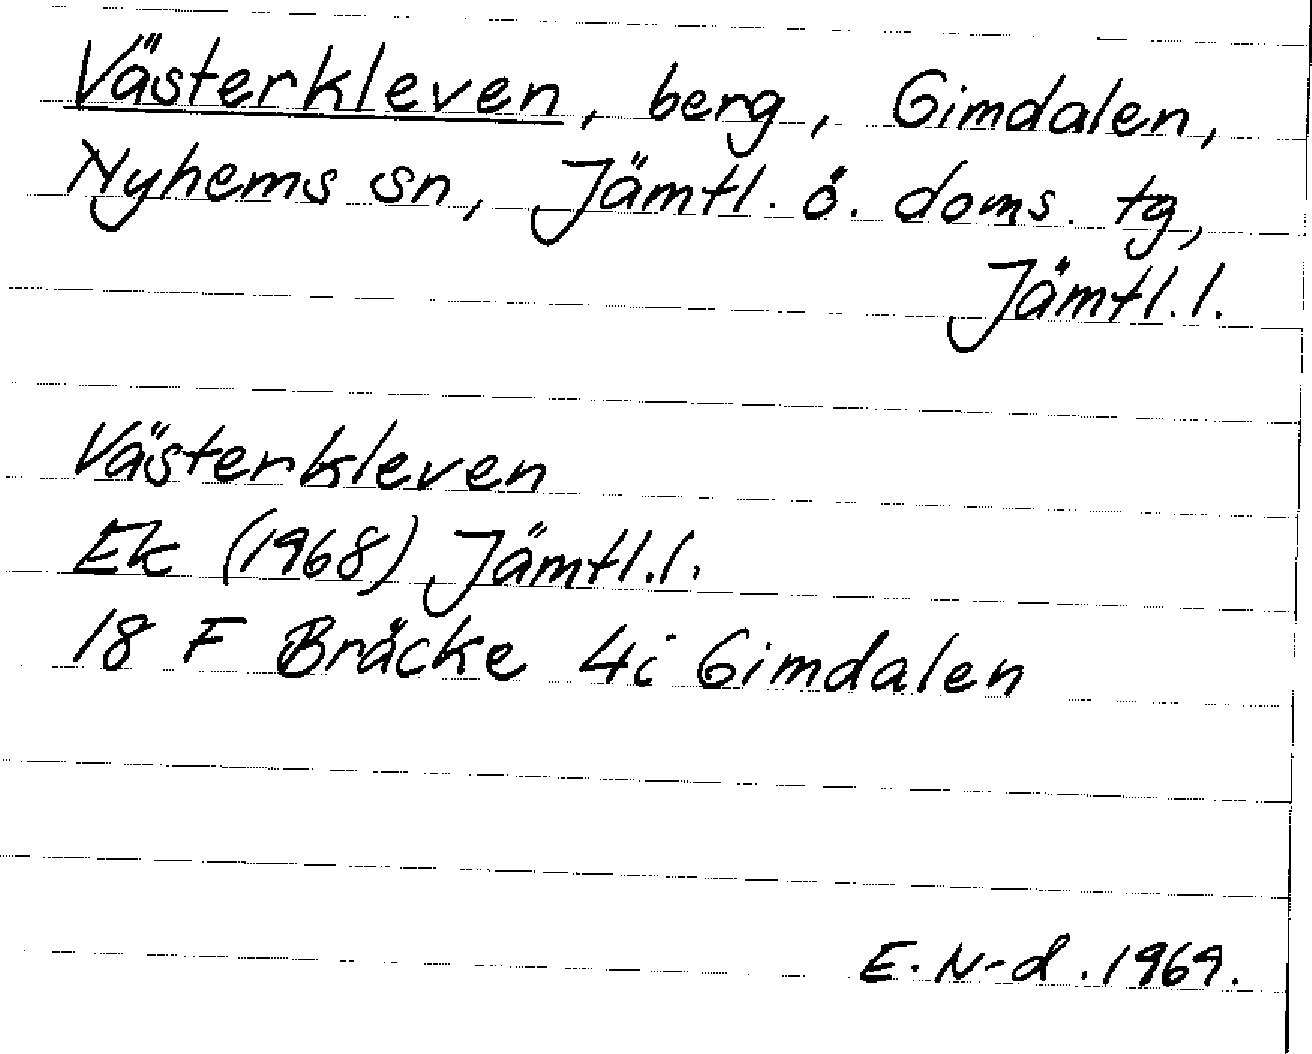 Västerkleven, berg, Gimdalen,
Nyhems sn, Jämtl. ö. doms. tg,
Jämtl. l.
Västerkleven
Ek (1968) Jämtl. l.
18 F Bräcke 4i Gimdalen
E. N-d. 1969.